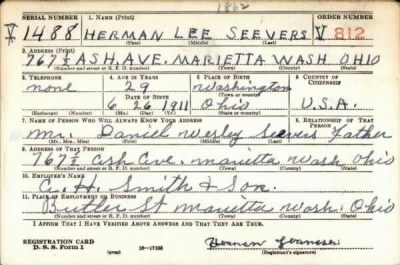 1862
SERIAL NUMBER 1. NAME (Print) ORDER NUMBER
V 1488 HERMAN LEE SEEVERS V 812
(First) (Middle) (Last)
2. ADDRESS (Print)
767½ ASH. AVE. MARIETTA WASH OHIO
(Number and street or R. F. D. number) (Town) (County) (State)
3. TELEPHONE 4. AGE IN YEARS 5. PLACE OF BIRTH 6. COUNTRY OF CITIZENSHIP
none 29 Washington
DATE OF BIRTH (Town or county)
6 26 1911 Ohio U.S.A.
(Exchange) (Number) (Mo.) (Day) (Yr.) (State or country)
7. NAME OF PERSON WHO WILL ALWAYS KNOW YOUR ADDRESS 8. RELATIONSHIP OF THAT PERSON
Mr. Daniel Wesley Seevers Father
(Mr., Mrs., Miss) (First) (Middle) (Last)
9. ADDRESS OF THAT PERSON
767½ Ash Ave. Marietta Wash Ohio
(Number and street or R. F. D. number) (Town) (County) (State)
10. EMPLOYER'S NAME
C. H. Smith & Son.
11. PLACE OF EMPLOYMENT OR BUSINESS
Butler St Marietta Wash. Ohio
(Number and street or R. F. D. number) (Town) (County) (State)
I AFFIRM THAT I HAVE VERIFIED ABOVE ANSWERS AND THAT THEY ARE TRUE.
REGISTRATION CARD
D. S. S. Form 1 (over) 16—17105 Herman Seevers
(Registrant's signature)